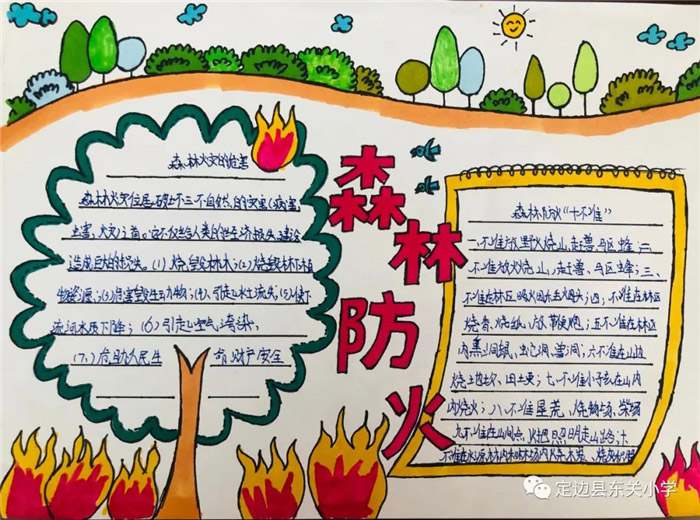 森林火灾的危害
森林火灾位居破坏三不自然的灾害(病害、
虫害、火灾)之首。它不仅给人类的经济建设
造成巨大的损失。(1)烧毁林木;(2)烧毁林下植
物资源;(3)危害野生动物;(4)、引起水土流失;(5)使下
流河水质下降;(6)引起空气污染;
(7、)危助人民生 命财产安全
森林防火
森林防火“十不准”
一.不准放野火烧山、赶兽、驱蜂;二、
不准放火烧山、赶兽、驱蜂;三、
不准在林区吸烟
四、不准在林区
烧香、烧纸、放鞭炮;五不准在林区
内熏洞鼠、出蛇洞、兽洞;六不准在山边
烧土边坎、田土埂;七、不准小孩在山内
内烧火;八、不准垦荒、
九不准在山间点火把照明走山路;十
定边县东关小学